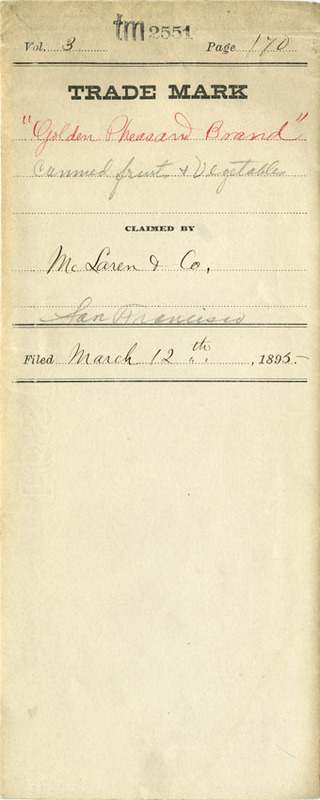 tm 2551
Vol. 3 Page 170
TRADE MARK
"Golden Pheasant Brand"
Canned fruits & Vegetables
CLAIMED BY
McLaren & Co,
San Francisco
Filed March 12th, 1895-